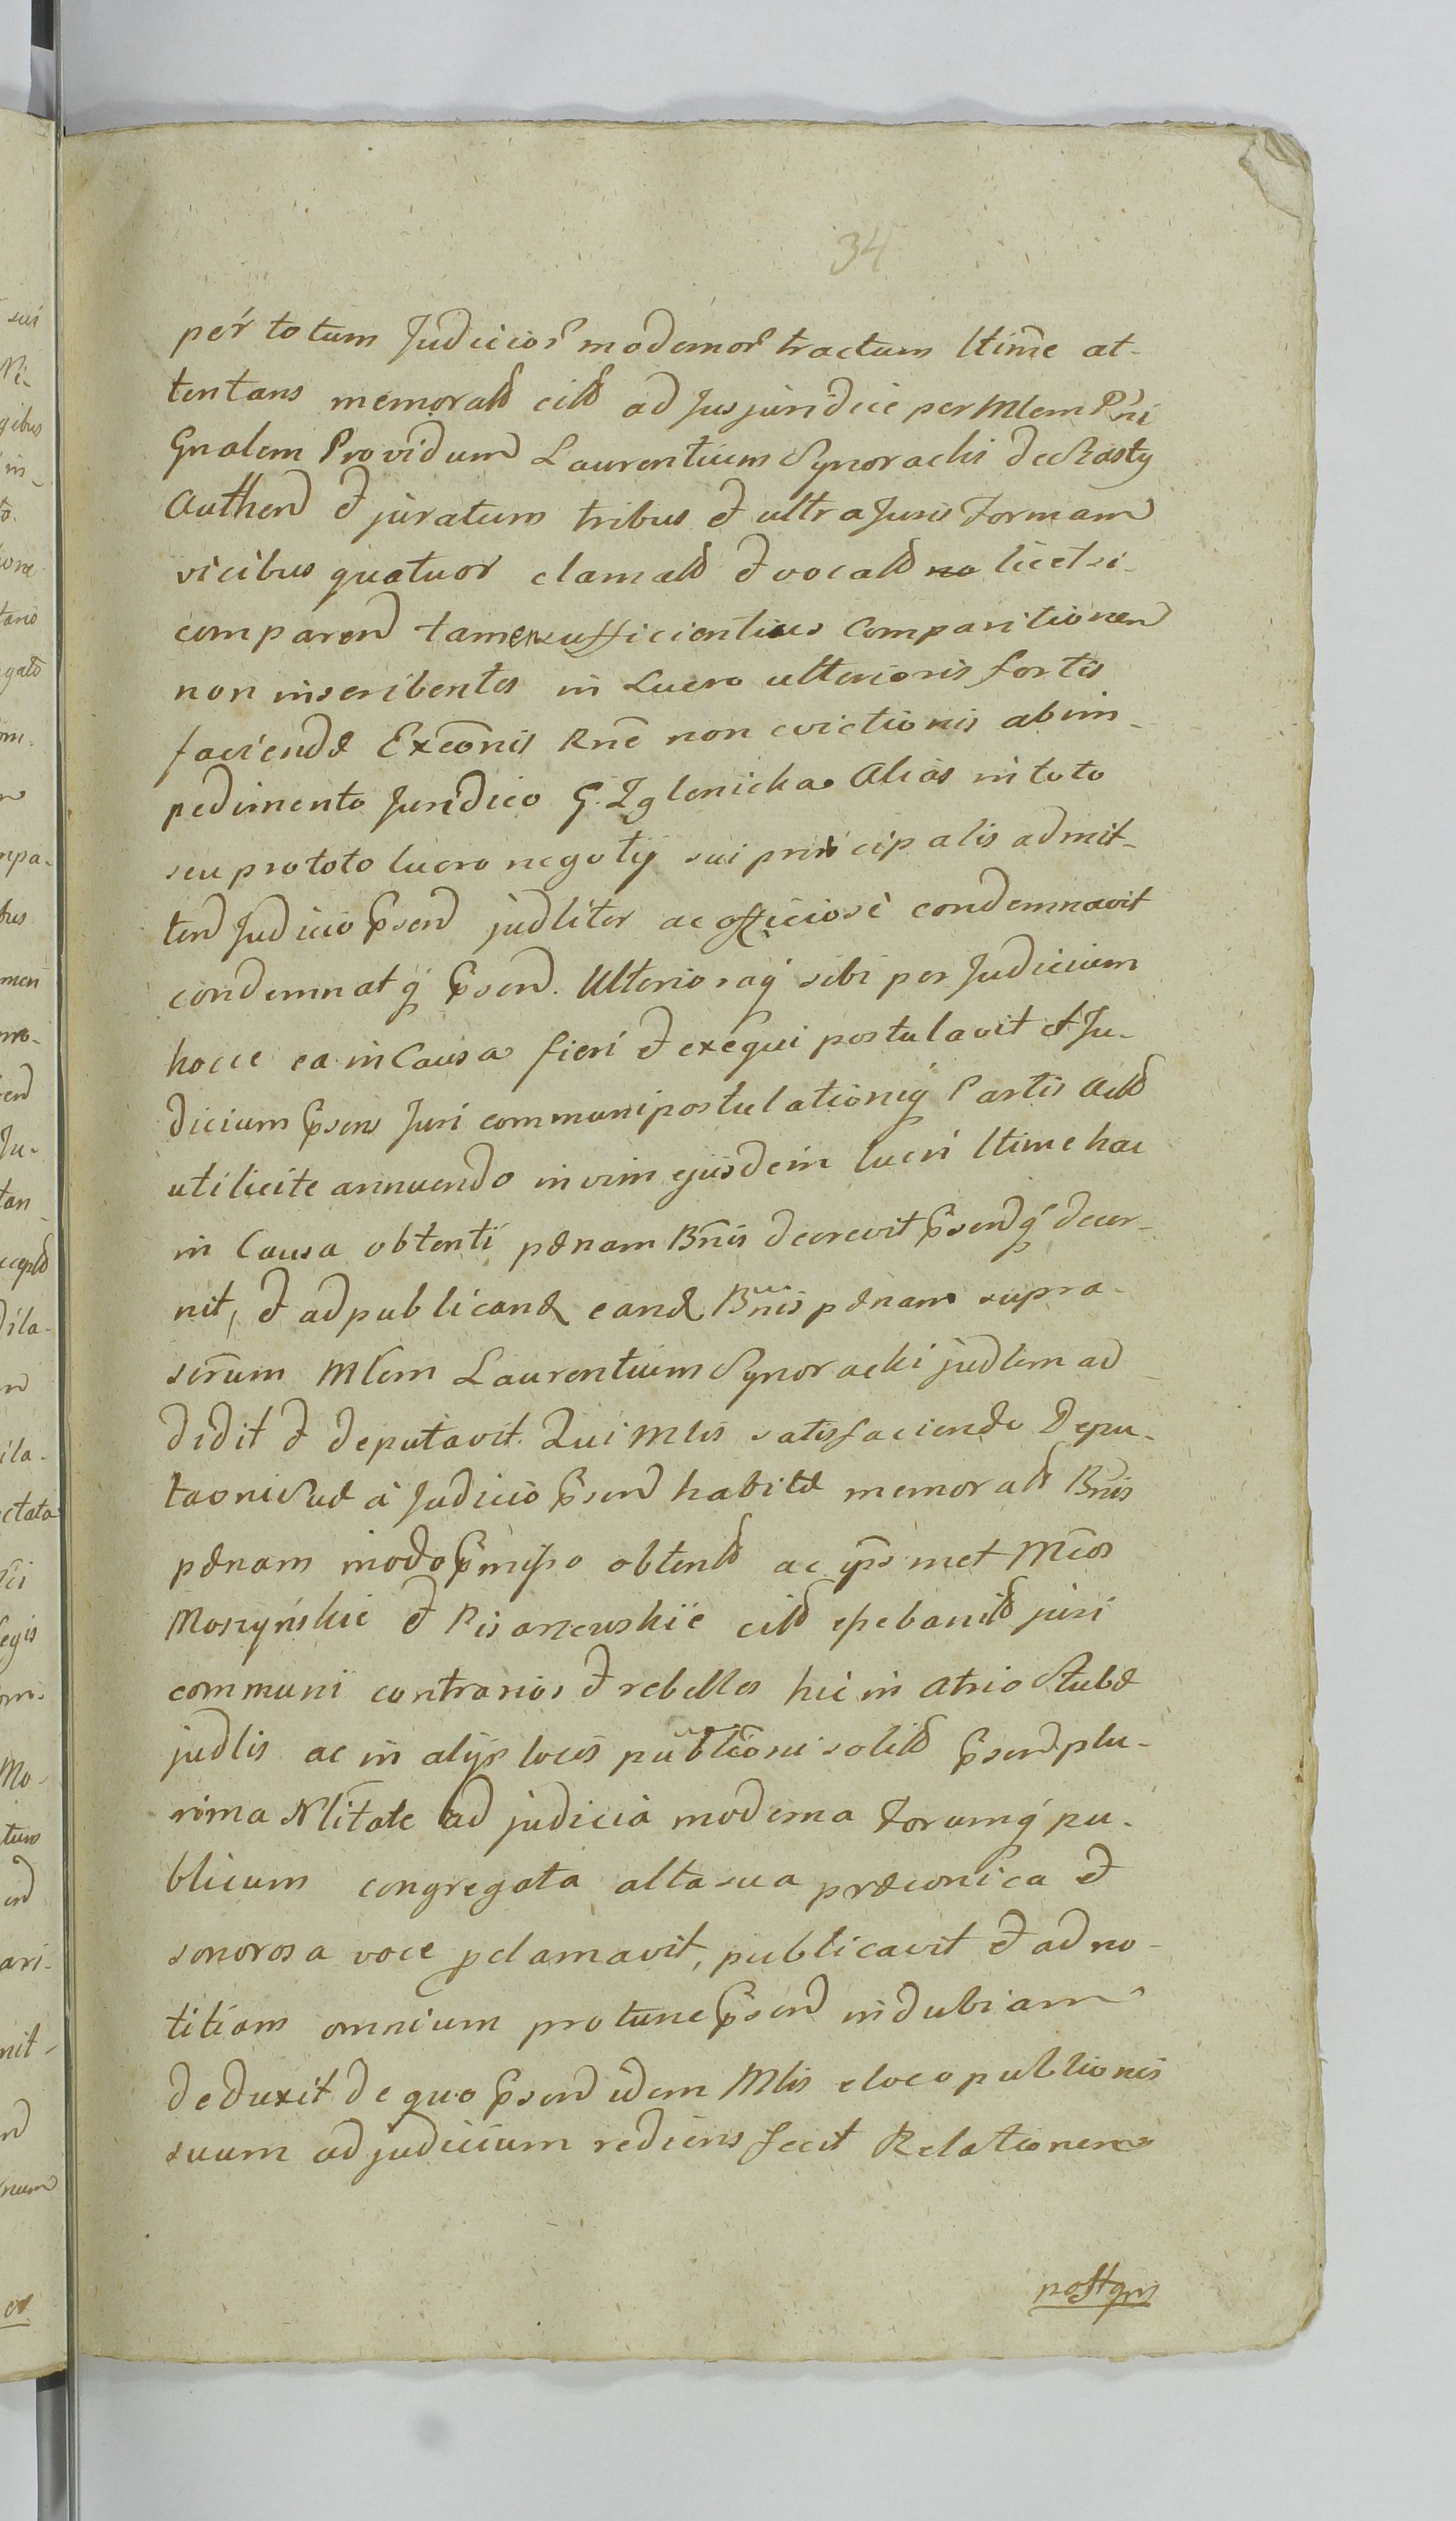 34
per totum Judicior modernor tractum ltime at-
tentans memorald citd ad Jus juridice per Mlem Rni
Gnalem Providum Laurentium Synoracki de Rasty
Authen et juratum tribus et ultra Juris Formam
vicibus quatuor clamald et vocald no licet si
comparen tamen sufficientius Comparitionem
non inscribentes in Lucro ulterioris fortis
faciendæ Exeonis Rne non evictionis ab im-
pedimento Juridico G. Zglenicka Alias in toto
seu pro toto lucro negotij sui principalis admit-
ten Judicio psen judliter ac officiose condemnavit
condemnatq psen. Ulterioraq sibi per Judicium
hocce ea in Causa fieri et exequi postulavit et Ju-
dicium psens Juri communi postulationiq Partis Actd
uti licite annuendo in vim ejusdem lucri ltime hac
in Causa obtenti pænam Bnis decrevit psenq decer-
nit, et ad publicand eand Bnis pænam supra-
scrum Mlem Laurentium Synoracki judlem ad
didit et deputavit. Qui Mlis satisfaciendo Depu-
taoni suæ a Judicio psen habitæ memorald Bnis
pænam modo pmisso obtend ac ipsmet Mcos
Moszyńskie et Pisarzewskie citd juri
communi contrarios et rebelles hic in atrio Stubæ
judlis ac in alijs locis publioni solitd psen plu-
rima Nlitate ad judicia moderna Forumq pu-
blicum congregata alta sua præconica et
sonorosa voce pclamavit, publicavit et ad no-
titiam omnium pro tunc psen indubiam
deduxit de quo psen idem Mlis e loco publionis
suum ad judicium rediens fecit Relationem
postqm